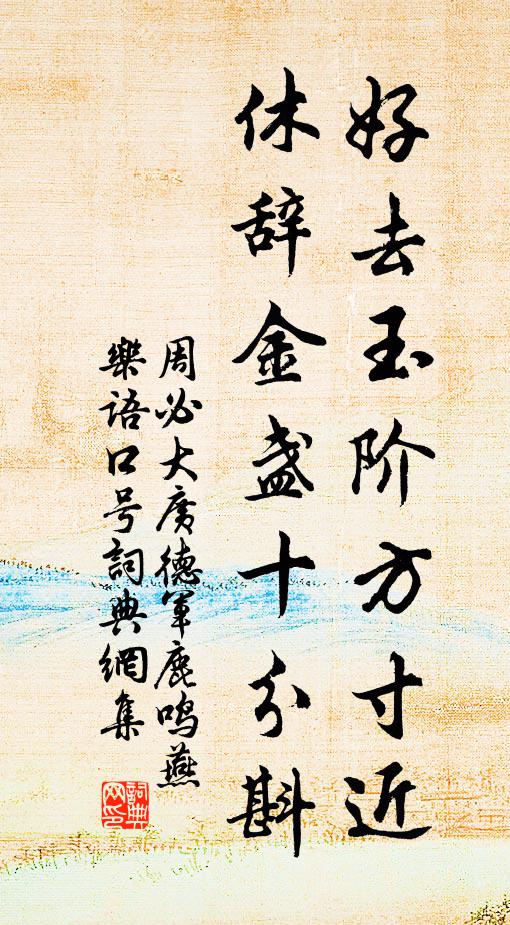 好去玉阶方寸近
休辞金盏十分斟
周必大广德军鹿鸣燕
樂语口号詞典網集
詞典网印